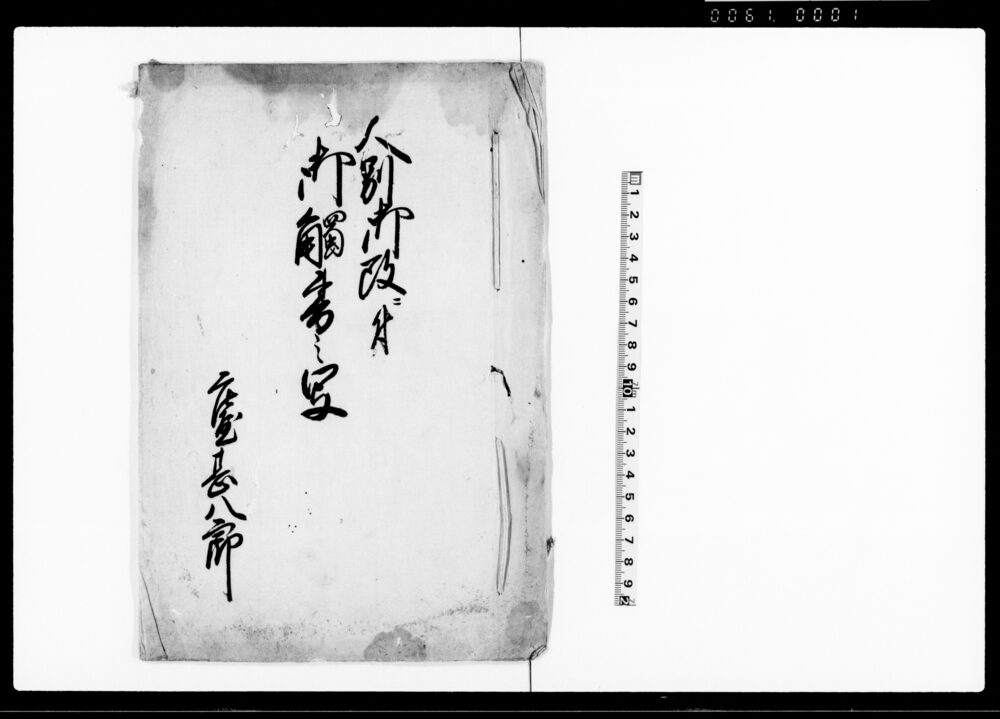 0061. 0001
人別御改ニ付
御觸書之写
庄屋甚八郎
m 1 2 3 4 5 6 7 8 9 10 1 2 3 4 5 6 7 8 9 2